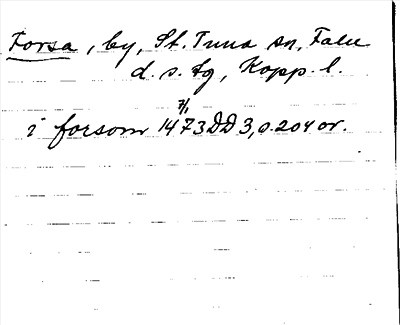 Forsa, by, St. Tuna sn, Falu
d. s. tg, Kopp. l.
7/1
i forsom 1473 DD 3, o. 204 or.